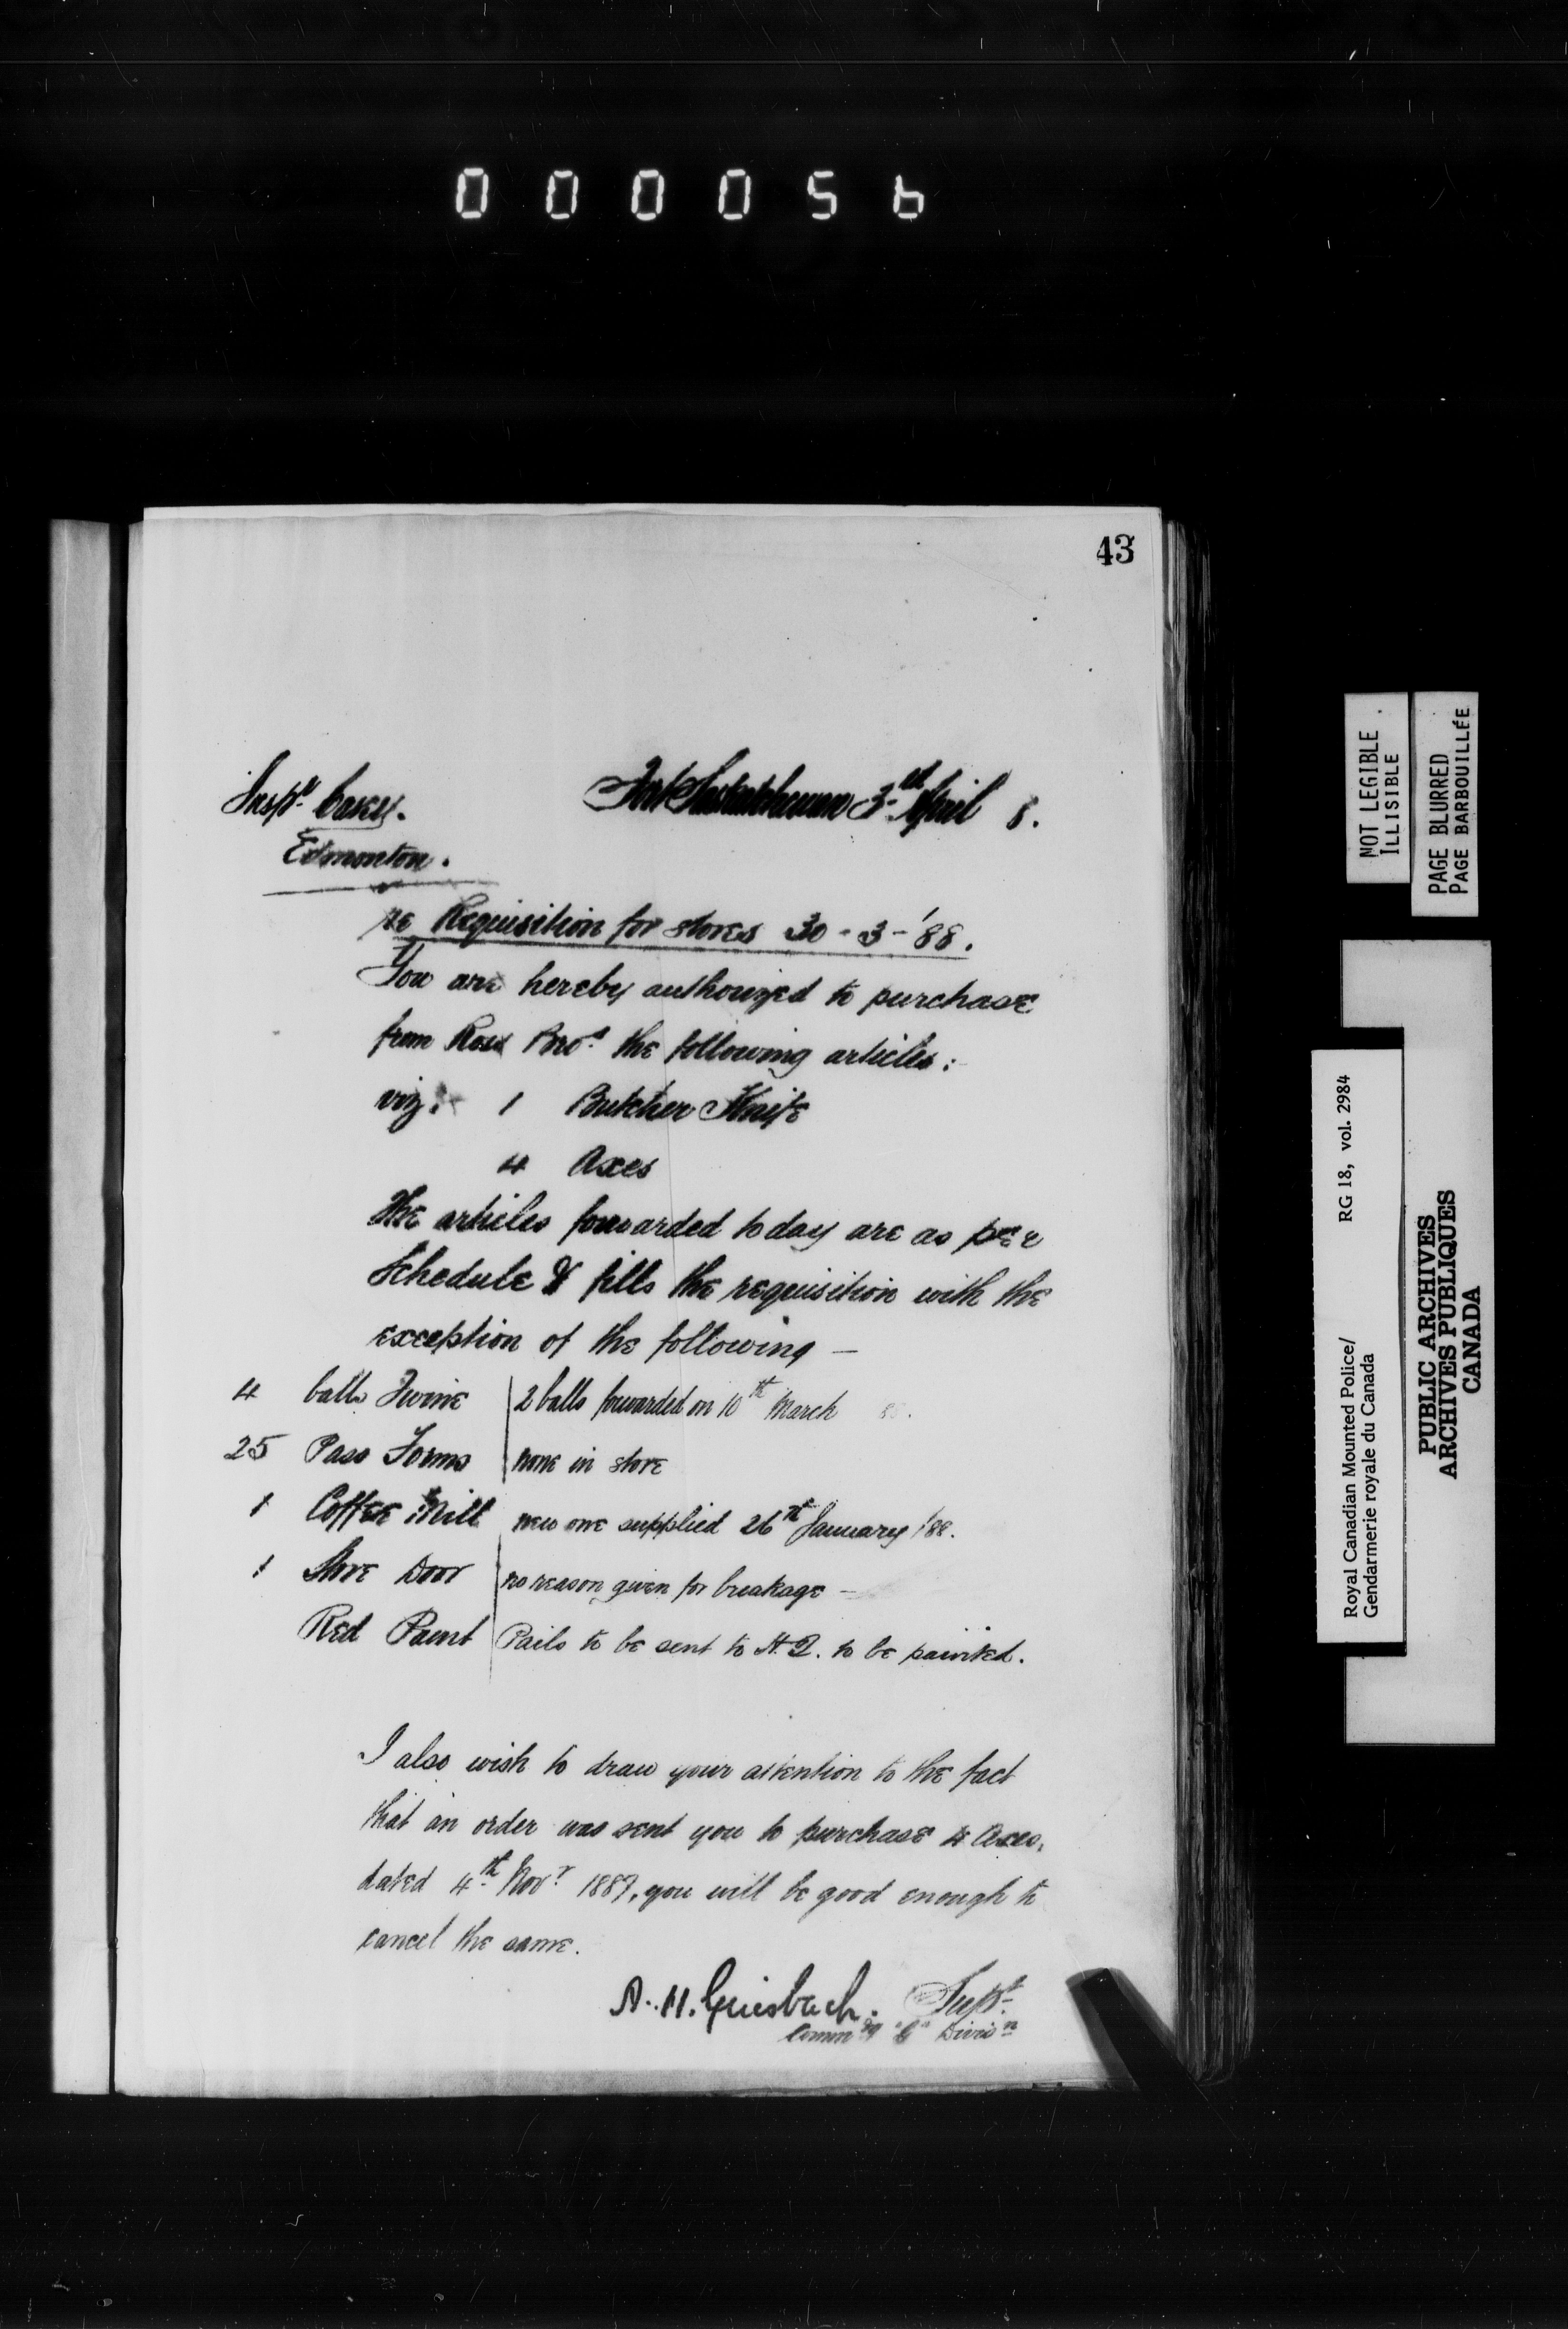 000056
43
Inspr. Casey.
Fort Saskatchewan 3rd April 8.
Edmonton.
re Requisition for stores 30-3-'88.
You are hereby authorized to purchase
from Ross Bros. the following articles:
viz. 1 Butcher Knife
4 Axes
The articles forwarded today are as per
Schedule & fills the requisition with the
exception of the following —
4 balls Twine 2 balls forwarded on 10th March 88.
25 Pass Forms none in store
1 Coffee Mill new one supplied 26th January '88.
1 Stove Door no reason given for breakage —
Red Paint Pails to be sent to H.Q. to be painted.
I also wish to draw your attention to the fact
that an order was sent you to purchase 4 Axes,
dated 4th Novr. 1887, you will be good enough to
cancel the same.
A. H. Griesbach. Supt.
Commdg "G" Divisn
NOT LEGIBLE
ILLISIBLE
PAGE BLURRED
PAGE BARBOUILLÉE
Royal Canadian Mounted Police/ RG 18, vol. 2984
Gendarmerie royale du Canada
PUBLIC ARCHIVES
ARCHIVES PUBLIQUES
CANADA